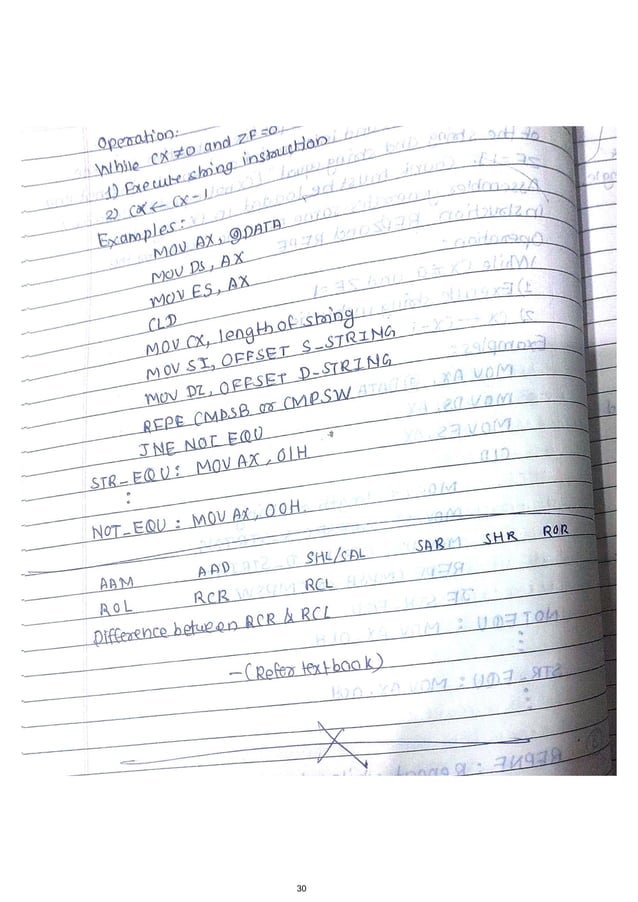 Operation:
While CX≠0 and ZF=0
1) Execute string instruction
2) CX ← CX-1
Examples:
MOV AX, @DATA
MOV DS, AX
MOV ES, AX
CLD
MOV CX, length of string
MOV SI, OFFSET S_STRING
MOV DI, OFFSET D-STRING
REPE CMPSB or CMPSW
JNE NOT EQU
STR_EQU: MOV AX, 01H
:
NOT_EQU: MOV AX, 00H.
AAM AAD SHL/SAL SAR SHR ROR
ROL RCR RCL
Difference between RCR & RCL
-(Refer textbook)
30